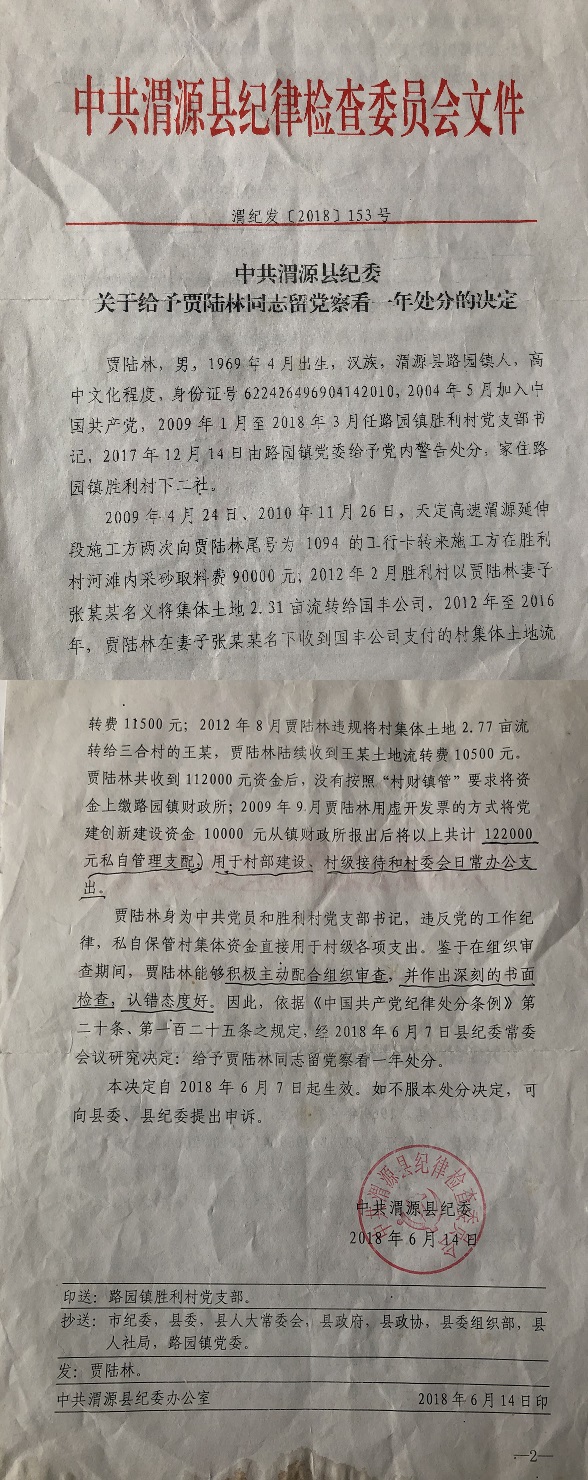 中共渭源县纪律检查委员会文件
渭纪发〔2018〕153号
中共渭源县纪委
关于给予贾陆林同志留党察看一年处分的决定
贾陆林，男，1969年4月出生，汉族，渭源县路园镇人，高
中文化程度，身份证号622426496904142010，2004年5月加入中
国共产党，2009年1月至2018年3月任路园镇胜利村党支部书
记，2017年12月14日由路园镇党委给予党内警告处分，家住路
园镇胜利村下二社。
2009年4月24日、2010年11月26日，天定高速渭源延伸
段施工方两次向贾陆林尾号为1094的工行卡转来施工方在胜利
村河滩内采砂取料费90000元；2012年2月胜利村以贾陆林妻子
张某某名义将集体土地2.31亩流转给国丰公司，2012年至2016
年，贾陆林在妻子张某某名下收到国丰公司支付的村集体土地流
转费11500元；2012年8月贾陆林违规将村集体土地2.77亩流
转给三合村的王某，贾陆林陆续收到王某土地流转费10500元。
贾陆林共收到112000元资金后，没有按照“村财镇管”要求将资
金上缴路园镇财政所；2009年9月贾陆林用虚开发票的方式将党
建创新建设资金10000元从镇财政所报出后将以上共计122000
元私自管理支配，用于村部建设、村级接待和村委会日常办公支
出。
贾陆林身为中共党员和胜利村党支部书记，违反党的工作纪
律，私自保管村集体资金直接用于村级各项支出。鉴于在组织审
查期间，贾陆林能够积极主动配合组织审查，并作出深刻的书面
检查，认错态度好。因此，依据《中国共产党纪律处分条例》第
二十条、第一百二十五条之规定，经2018年6月7日县纪委常委
会议研究决定：给予贾陆林同志留党察看一年处分。
本决定自2018年6月7日起生效。如不服本处分决定，可
向县委、县纪委提出申诉。
中共渭源县纪律检查委员会
中共渭源县纪委
2018年6月14日
印送：路园镇胜利村党支部。
抄送：市纪委，县委，县人大常委会，县政府，县政协，县委组织部，县
人社局，路园镇党委。
发：贾陆林。
中共渭源县纪委办公室 2018年6月14日印
—2—